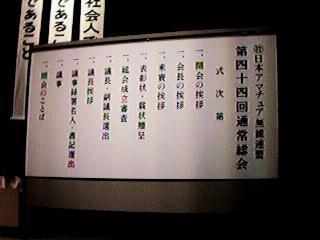 ㈳日本アマチュア無線連盟
第四十四回通常総会
式次第
一、開会の挨拶
一、会長の挨拶
一、来賓の挨拶
一、表彰状・賞状贈呈
一、総会成立審査
一、議長・副議長選出
一、議長挨拶
一、議事録署名人・書記選出
一、議事
一、閉会のことば
社会人
であること
であること